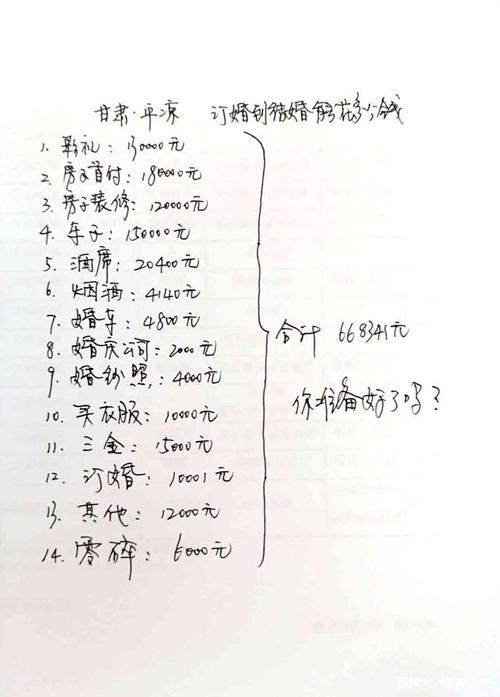 甘肃·平凉 订婚到结婚能花多少钱
1. 彩礼：130000元
2. 房子首付：180000元
3. 房子装修：120000元
4. 车子：150000元
5. 酒席：20400元
6. 烟酒：4140元
7. 婚车：4800元
8. 婚庆公司：2000元
9. 婚纱照：4000元
10. 买衣服：10000元
11. 三金：15000元
12. 订婚：10001元
13. 其他：12000元
14. 零碎：6000元
合计 668341元
你准备好了吗？